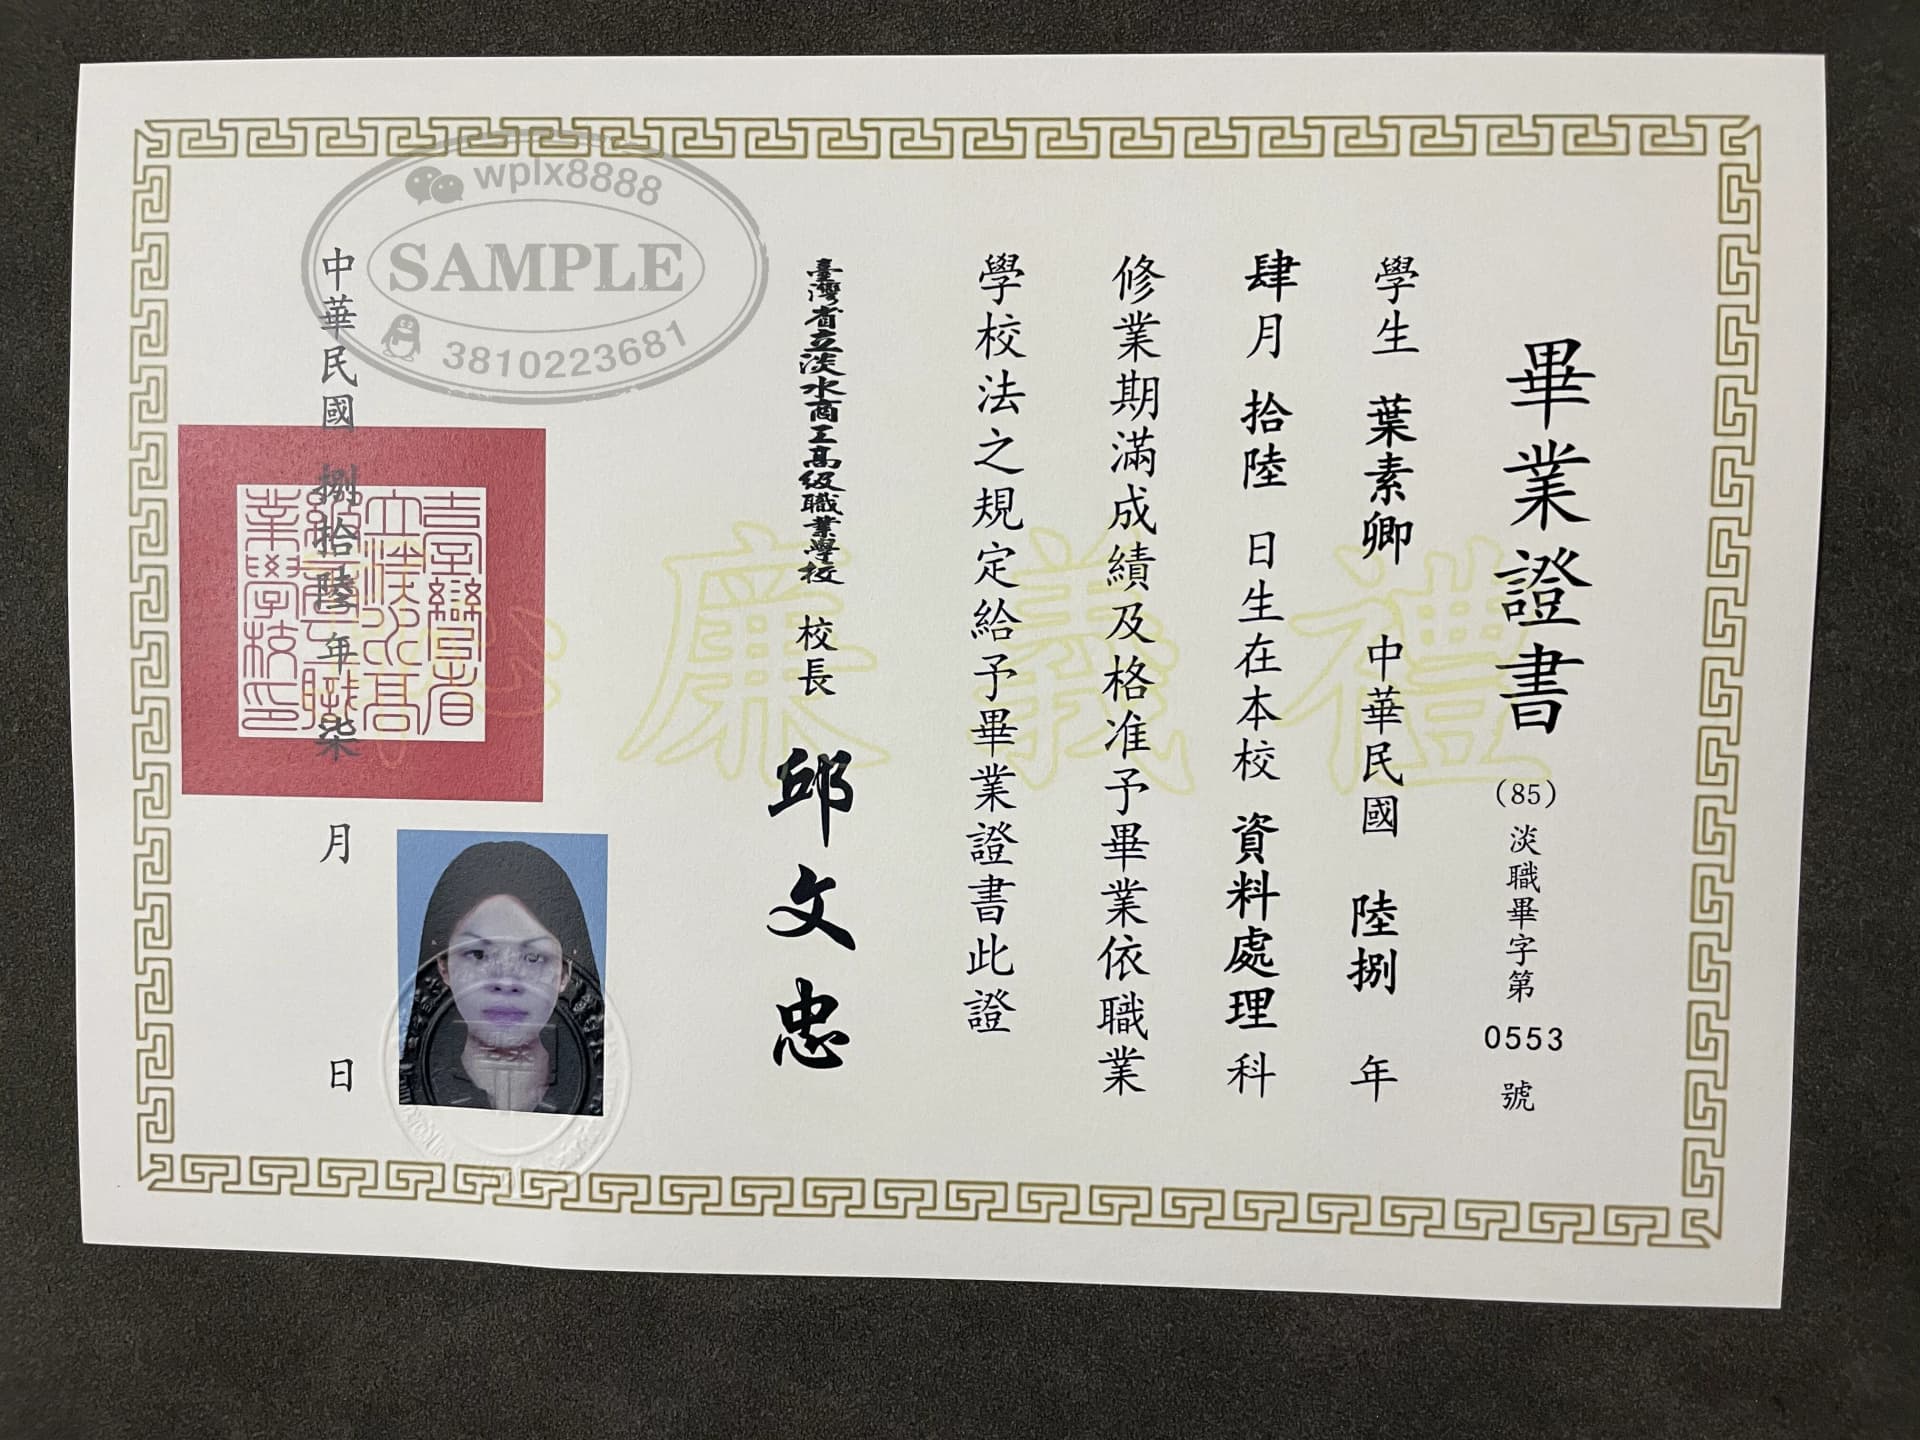 畢業證書
(85)淡職畢字第0553號
學生 葉素卿 中華民國 陸捌 年
肆月 拾陸 日生在本校 資料處理 科
修業期滿成績及格准予畢業依職業
學校法之規定給予畢業證書此證
臺灣省立淡水商工高級職業學校 校長 邱文忠
中華民國 捌拾陸年 柒 月 日
禮義廉恥
臺灣省
立淡水高
級商工職
業學校印
wplx8888
SAMPLE
3810223681